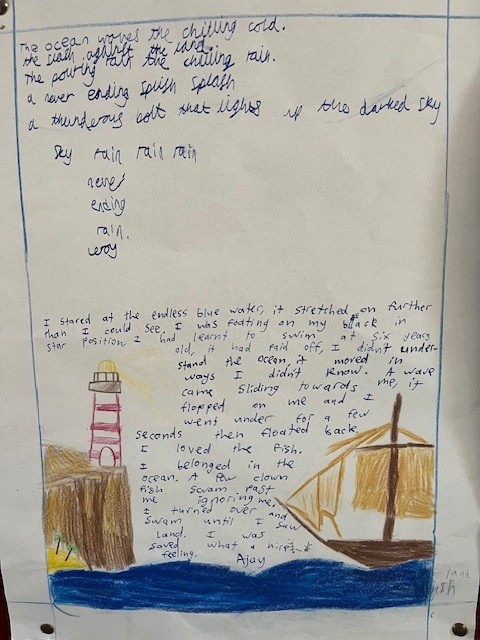 The ocean waves the chilling cold.
the slash against the land.
The pouring rain the chilling rain.
a never ending splish splash
a thunderous bolt that lights up the darked sky
sky rain rain rain
never
ending
rain.
I stared at the endless blue water, it stretched on further
than I could see. I was foating on my black in
star position, I had learnt to swim at six years
old, it had paid off, I didn't under-
stand the ocean, it moved in
ways I didn't know. A wave
came sliding towards me, it
flopped on me and I
went under for a few
seconds then floated back.
I loved the fish.
I belonged in the
ocean. A few clown
fish swam past
me ignoring me,
I turned over and
swam until I saw
land. I was
saved what a nice
feeling. Ajay